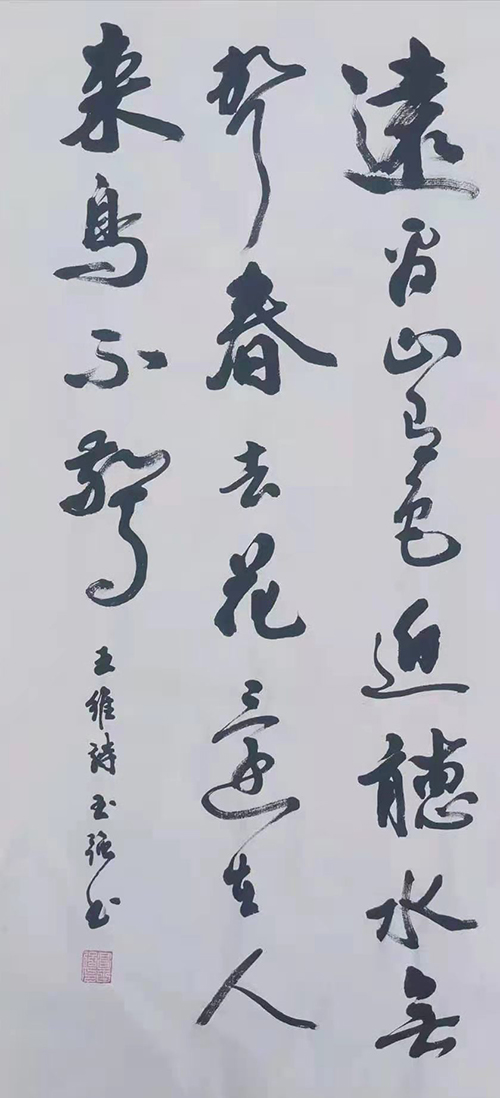 遠看山有色近聽水無
聲春去花還在人
来鳥不驚
王維詩玉强书